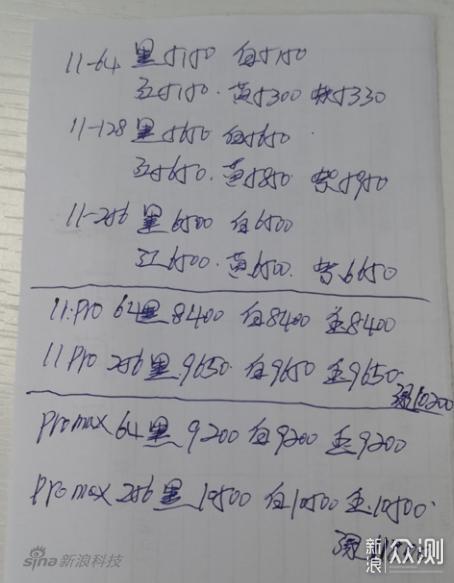 11-64 黑5150 白5150
红5150. 黄5300 紫5330
11-128 黑5650 白5650
红5650. 黄5850 紫5950
11-256 黑6500 白6500
红6500. 黄6500. 紫6650
11.Pro 64黑8400 白8400 金8400
11 Pro 256 黑.9650. 白9650 金9650.
绿10200
Promax 64黑 9200 白9200 金9200
Promax 256黑 10500 白10500 金.10500.
绿
sina 新浪科技
新浪众测